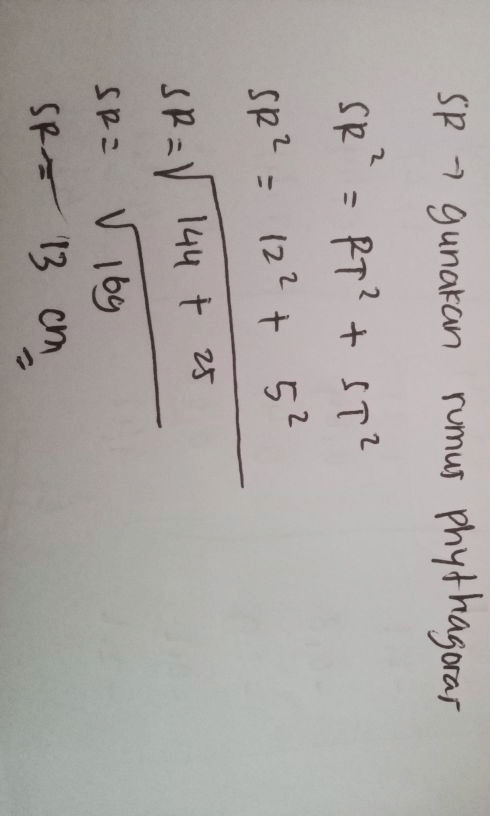 SR → gunakan rumus phythagoras
SR² = RT² + ST²
SR² = 12² + 5²
SR = √144 + 25
SR = √169
SR = 13 cm